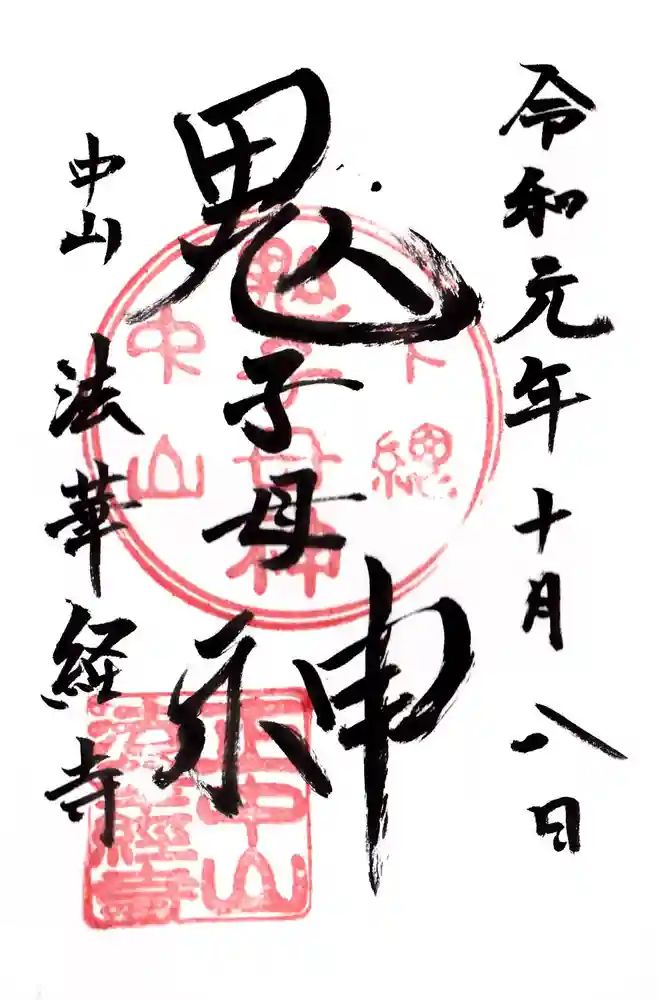 令和元年十月八日
鬼子母神
中山
法華経寺
下總
鬼子母神
中山
正中山
法華経寺